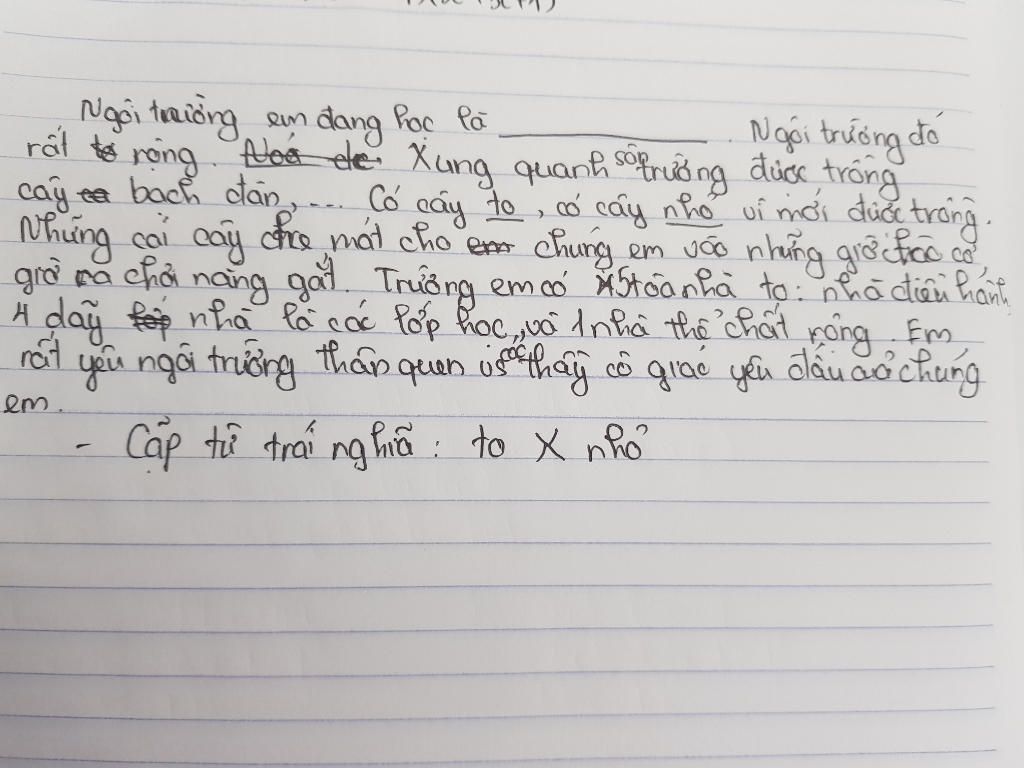 Ngôi trường em đang học là ___________ . Ngôi trường đó
rất rộng. Xung quanh sân trường được trồng
cây bạch đàn, ... Có cây to, có cây nhỏ vì mới được trồng.
Những cái cây che mát cho chúng em vào những giờ có
giờ ra chơi nắng gắt. Trường em có 5 toà nhà to: nhà điều hành,
4 dãy nhà là các lớp học, và 1 nhà thể chất rộng. Em
rất yêu ngôi trường thân quen và các thầy cô giáo yêu dấu của chúng
em.
- Cặp từ trái nghĩa: to X nhỏ